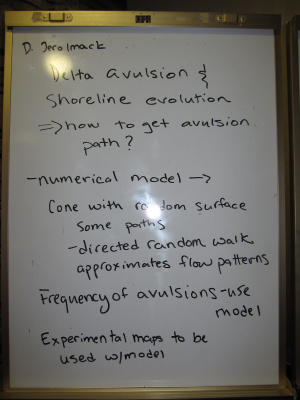 D. Jerolmack
Delta avulsion &
Shoreline evolution
=> how to get avulsion
path?
-numerical model ->
Cone with random surface
Some paths
-directed random walk
approximates flow patterns
Frequency of avulsions-use
model
Experimental maps to be
used w/model